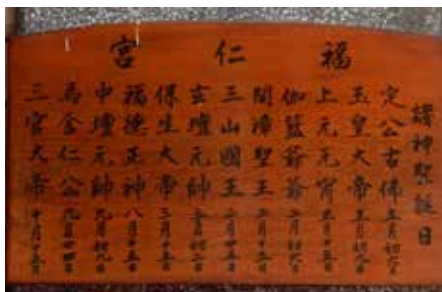 福仁宮
諸神聖誕日
定公古佛 正月初六日
玉皇大帝 正月初九日
上元元宵 正月十五日
伽藍爺爺 二月初六日
開漳聖王 二月十五日
三山國王 二月廿五日
玄壇元帥
保生大帝 三月十五日
福德正神 八月十五日
中壇元帥 九月初九日
仁公 九月廿四日
三官大帝 十月十五日